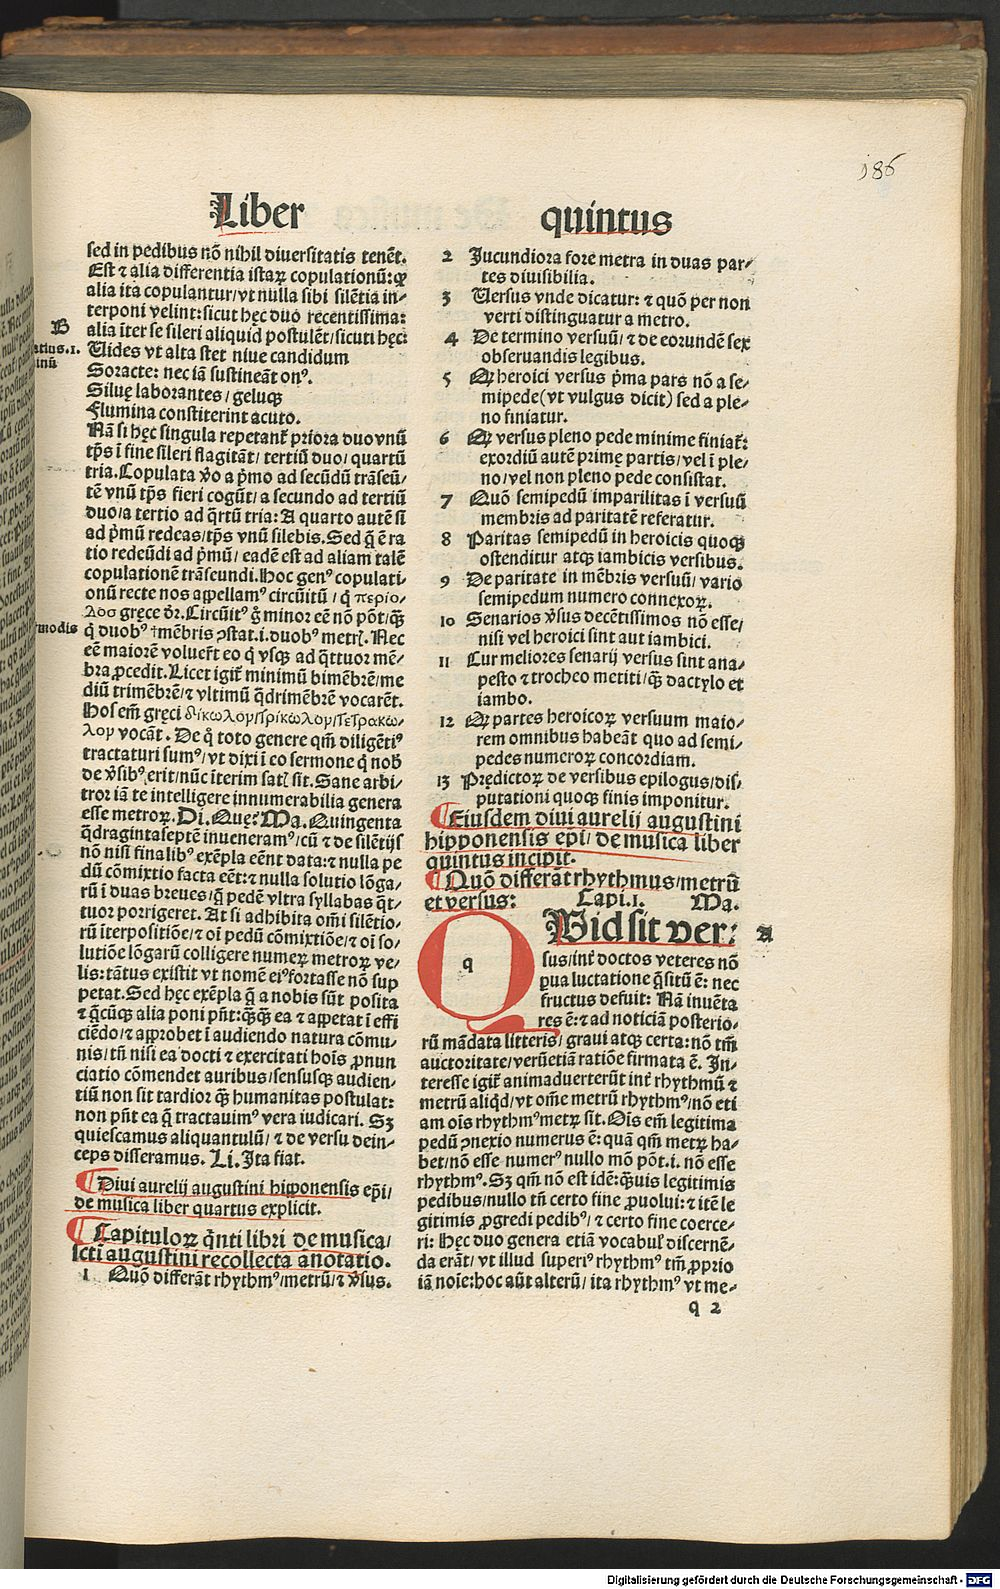 186
Liber quintus
sed in pedibus nō nihil diuersitatis tenēt.
Est ⁊ alia differentia istaꝝ copulationū: ꝙ
alia ita copulantur/vt nulla sibi silētia in-
terponi velint: sicut hęc duo recentissima:
B
alia īter se sileri aliquid postulēt/sicuti hęc:
Uides vt alta stet niue candidum
Soracte: nec iā sustineāt onꝰ.
Siluę laborantes/geluqꝫ
Flumina constiterint acuto.
Nā si hęc singula repetant᷑ priora duo vnū
tp̄s ī fine sileri flagitāt/tertiū duo/quartū
tria. Copulata v̄o a p̄mo ad secūdū trāseū/
tē vnū tp̄s fieri cogūt/a secundo ad tertiū
duo/a tertio ad q̄rtū tria: A quarto autē si
ad p̄mū redeas/tp̄s vnū silebis. Sed q̄ ē ra
tio redeūdi ad p̄mū/eadē est ad aliam talē
copulationē trāseundi. Hoc genꝰ copulati-
onū recte nos appellamꝰ circūitū/q̄ περιο/
λοσ gręce dr̄. Circūitꝰ g̊ minor eē nō pōt/qꝫ̄
modis
q̄ duobꝰ †mēbris ꝯstat.i.duobꝰ metrꝭ. Nec
eē maiorē voluer̄t eo q̄ vsqꝫ ad q̄ttuor mē/
bra ꝓcedit. Licet igit᷑ minimū bimēbrē/me
diū trimēbrē/⁊ vltimū q̄drimēbrē vocarēt.
Hos em̄ gręci δικωλον/τρικωλον/τετρακω/
λον vocāt. De q̄ toto genere qm̄ diligētiꝰ
tractaturi sumꝰ/vt dixi ī eo sermone q̄ nob̄
de v̄sibꝰ erit/nūc īterim satꝭ sit. Sane arbi/
tror iā te intelligere innumerabilia genera
esse metroꝝ. Di. Quę? Ma. Quingenta
q̄dragintaseptē inueneramꝰ/cū ⁊ de silētijs
nō nisi finalibꝰ exēpla eēnt data: ⁊ nulla pe
dū cōmixtio facta eēt: ⁊ nulla solutio lōga/
rū ī duas breues/q̄ pedē vltra syllabas q̄t/
tuor porrigeret. At si adhibita om̄i silētio/
rū īterpositiōe/⁊ oī pedū cōmixtiōe/⁊ oī so/
lutiōe lōgarū colligere numeꝝ metroꝝ ve/
lis: tātus existit vt nomē eiꝰ fortasse nō sup
petat. Sed hęc exēpla q̄ a nobis sūt posita
⁊ q̄cūqꝫ alia poni pn̄t: qꝫ̄qꝫ̄ ea ⁊ appetat ī effi
ciēdo/⁊ approbet ī audiendo natura cōmu/
nis/tn̄ nisi ea docti ⁊ exercitati hoīs ꝓnun
ciatio cōmendet auribus/sensusqꝫ audien/
tiū non sit tardior qꝫ̄ humanitas postulat:
non pn̄t ea q̄ tractauimꝰ vera iudicari. Sꝫ
quiescamus aliquantulū/⁊ de versu dein/
ceps disseramus. Li. Ita fiat.
¶ Diui aurelij augustini hipponensis ep̄i/
de musica liber quartus explicit.
¶ Capituloꝝ q̄nti libri de musica/
sct̄i augustini recollecta ānotatio.
1 Quō differāt rhythmꝰ/metrū/⁊ v̄sus.
2 Jucundiora fore metra in duas par/
tes diuisibilia.
3 Uersus vnde dicatur: ⁊ quō per non
verti distinguatur a metro.
4 De termino versuū/⁊ de eorundē sex
obseruandis legibus.
5 Qꝙ heroici versus p̄ma pars nō a se/
mipede (vt vulgus dicit) sed a ple/
no finiatur.
6 Qꝙ versus pleno pede minime finiat᷑:
exordiū autē primę partis/vel ī ple/
no/vel non pleno pede consistat.
7 Quō semipedū imparilitas ī versuū
membris ad paritatē referatur.
8 Paritas semipedū in heroicis quoqꝫ
ostenditur atqꝫ iambicis versibus.
9 De paritate in mēbris versuū/vario
semipedum numero connexoꝝ.
10 Senarios v̄sus decētissimos nō esse/
nisi vel heroici sint aut iambici.
11 Cur meliores senarij versus sint ana/
pesto ⁊ trocheo metiti/qꝫ̄ dactylo et
iambo.
12 Qꝙ partes heroicoꝝ versuum maio/
rem omnibus habeāt quo ad semi/
pedes numeroꝝ concordiam.
13 Prędictoꝝ de versibus epilogus/dis/
putationi quoqꝫ finis imponitur.
¶ Eiusdem diui aurelij augustini
hipponensis ep̄i/de musica liber
quintus incipit.
¶ Quō differāt rhythmus/metrū
et versus: Capi.1. Ma.
Quid sit ver: A
sus/int᷑ doctos veteres nō
ꝑua luctatione q̄situ ē: nec
fructus defuit: Nā inuēta
res ē: ⁊ ad noticiā posterio/
rū mādata litteris/graui atqꝫ certa: nō tm̄
auctoritate/verūetiā ratiōe firmata ē. In/
teresse igit᷑ animaduerterūt int᷑ rhythmū ⁊
metrū aliqd/vt om̄e metrū rhythmꝰ/nō eti
am oīs rhythmꝰ metꝝ sit. Oīs em̄ legitima
pedū ꝯnexio numerus ē: quā qm̄ metꝝ ha/
bet/nō esse numerꝰ nullo mō pōt.i. nō esse
rhythmꝰ. Sꝫ qm̄ nō est idē: q̄uis legitimis
pedibus/nullo tn̄ certo fine ꝓuolui: ⁊ itē le
gitimis ꝓgredi pedibꝰ/⁊ certo fine coerce/
ri: Hęc duo genera etiā vocabuꝭ discernē/
da erāt/vt illud superiꝰ rhythmꝰ tm̄ ꝓprio
iā noīe: hoc aūt alterū/ita rhythmꝰ vt me/
q 2
Digitalisierung gefördert durch die Deutsche Forschungsgemeinschaft - DFG